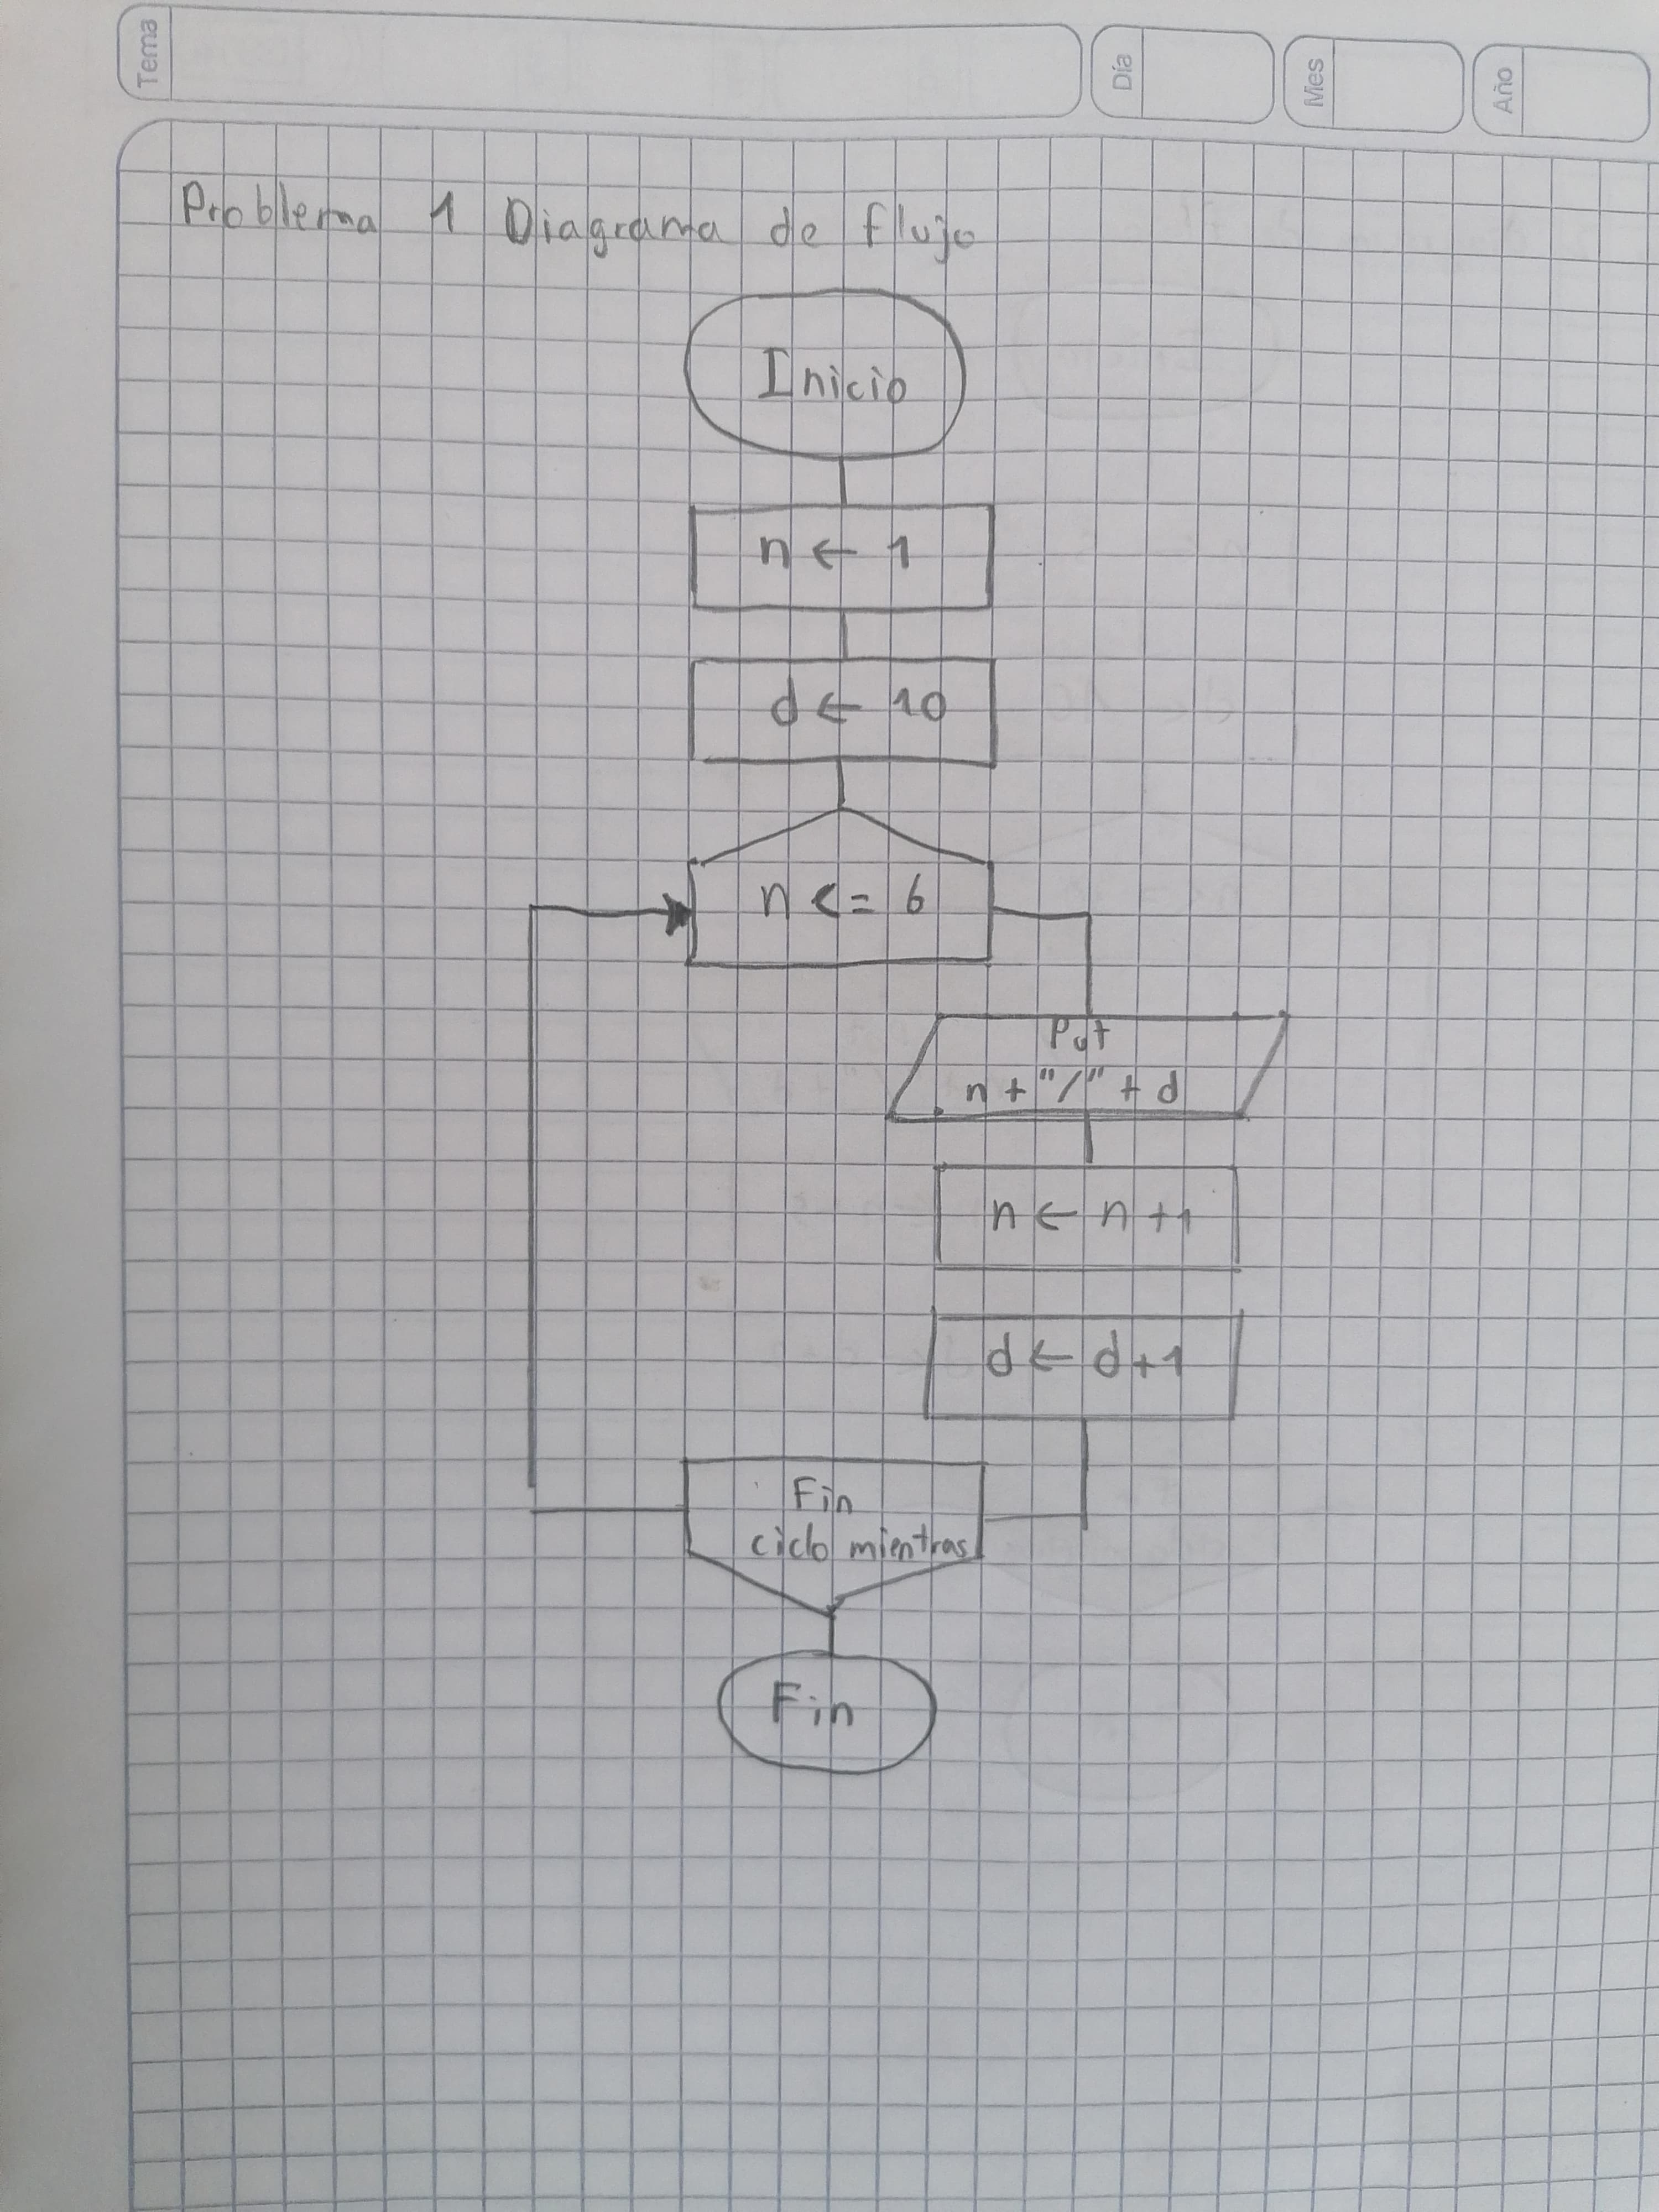 Tema
Día
Mes
Año
Problema 1 Diagrama de flujo
Inicio
n ← 1
d ← 10
n <= 6
Put
n + "/" + d
n ← n +1
d ← d+1
Fin
ciclo mientras
Fin